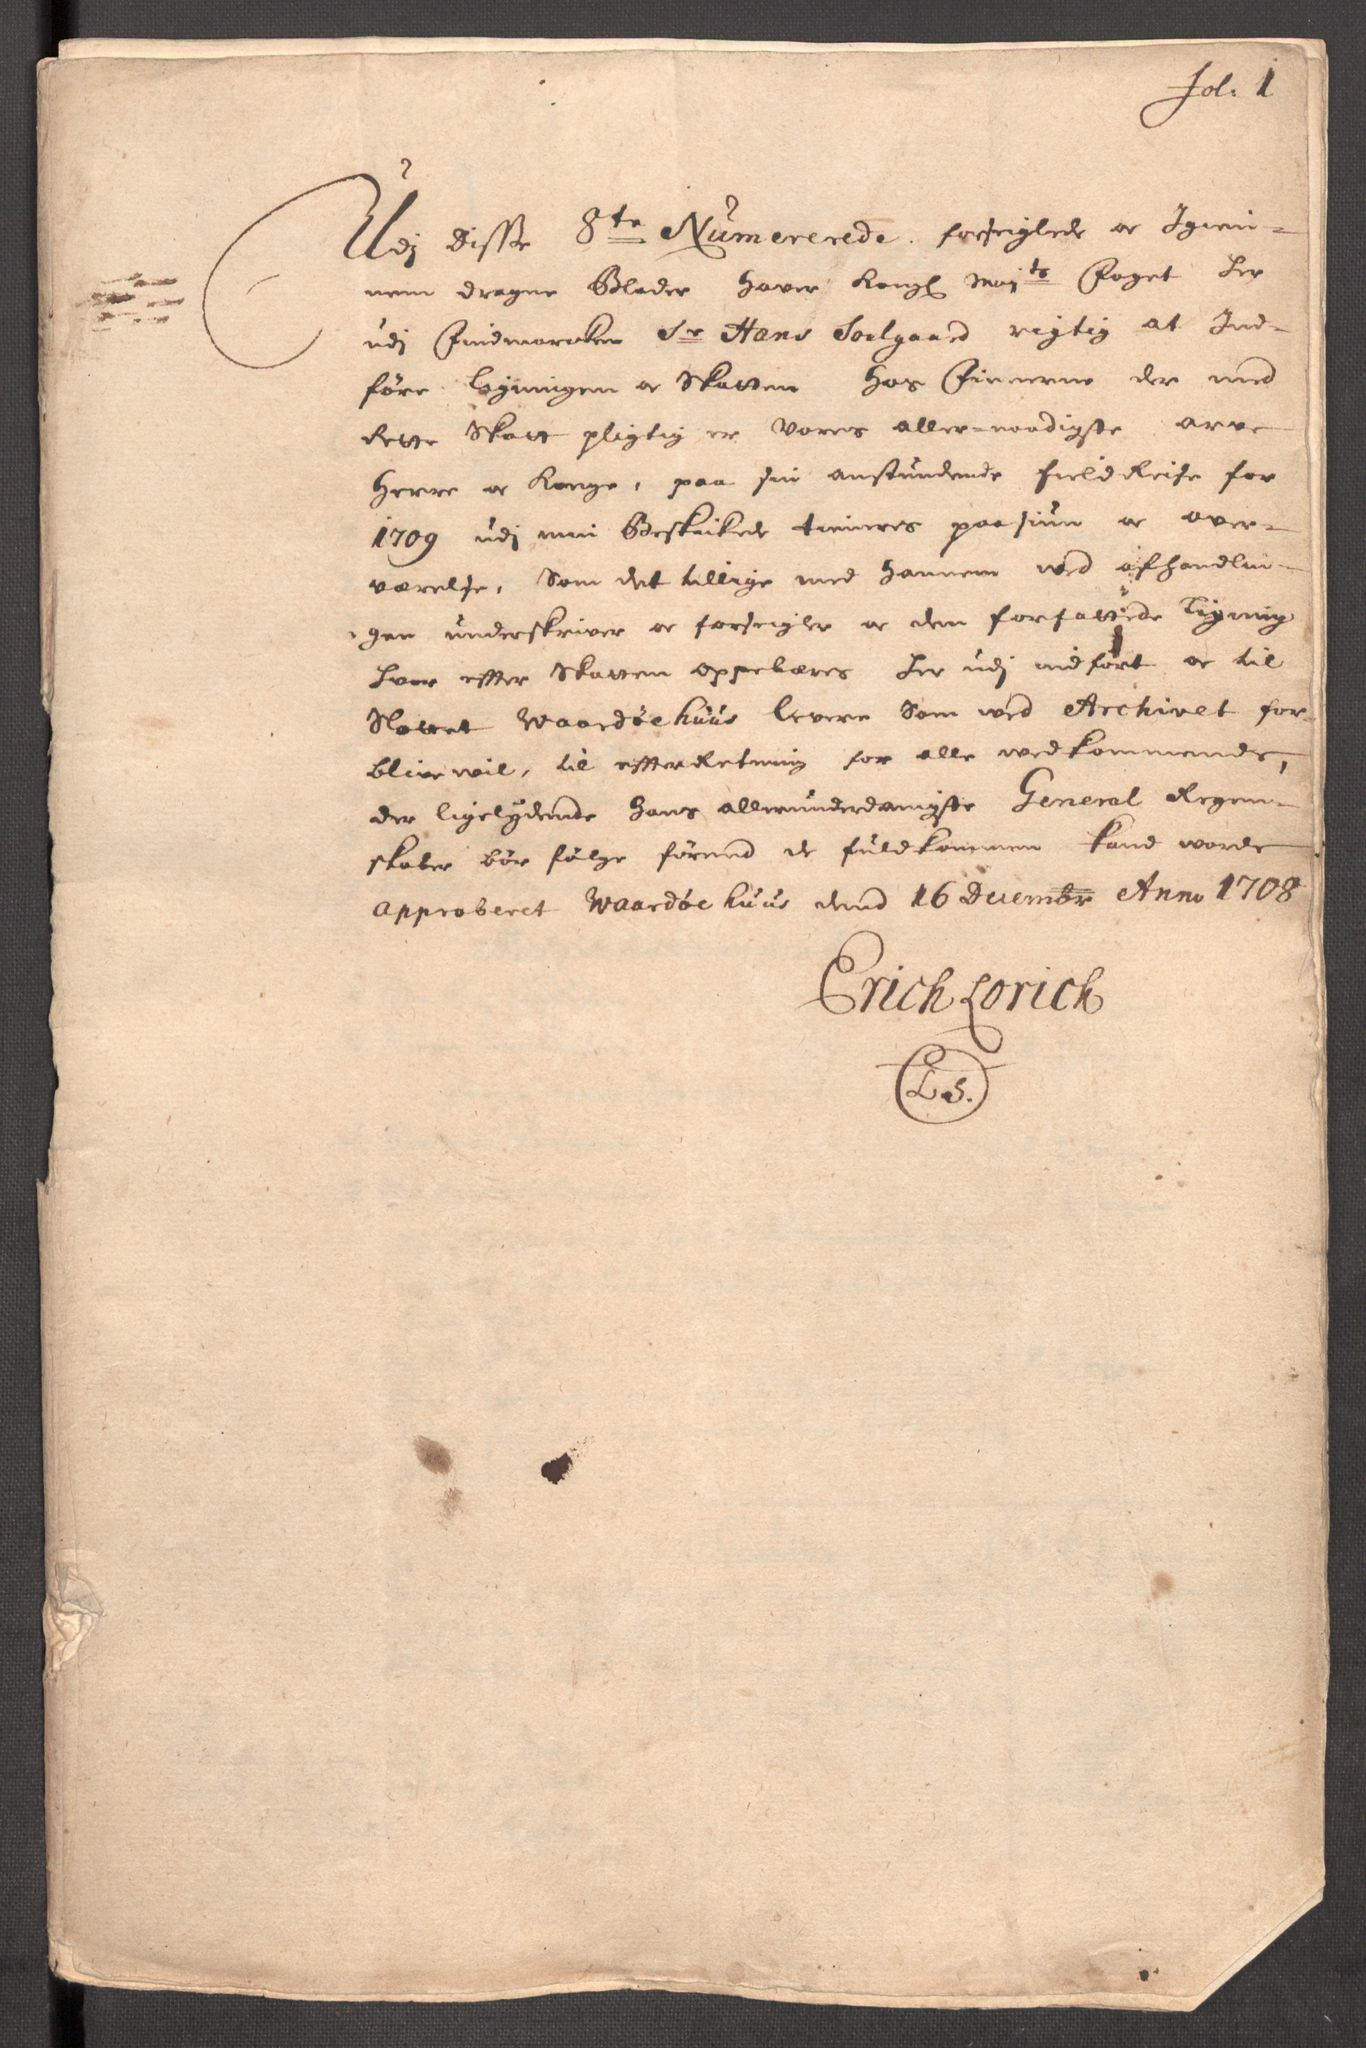 Fol: 1
Udj Disse 8te Numererede forseiglede oc Igien-
nem dragne Blader hafver Kongl Mayts Foget her
udj Findmarcken Sr Hans Soelgaard rigtig at Ind-
føre Ligningen oc Skatten hos Finnerne der med
Rette Skatt pligtig er Vores aller-naadigste arve
Herre oc Konge, paa sin anstundende field Reise for
1709 udj min Beskikede tieneres paasiun oc over-
værelse, Som det tillige med hannem ved afhandlin-
gen underskriver oc forseigler oc dem forfattede Ligning
hvor effter Skatten oppebæres her udj indført oc til
Slottet Waardøehuus levere Som ved Archivet for
blive vil, til effterRetning for alle vedkommende,
der ligelydende hans allerunderdanigste General Regen-
skaber bør følge førend de fuldkommen kand worde
Approberet Waardøehuus dend 16 Decembr Anno 1708
Erich Lorich
L S.